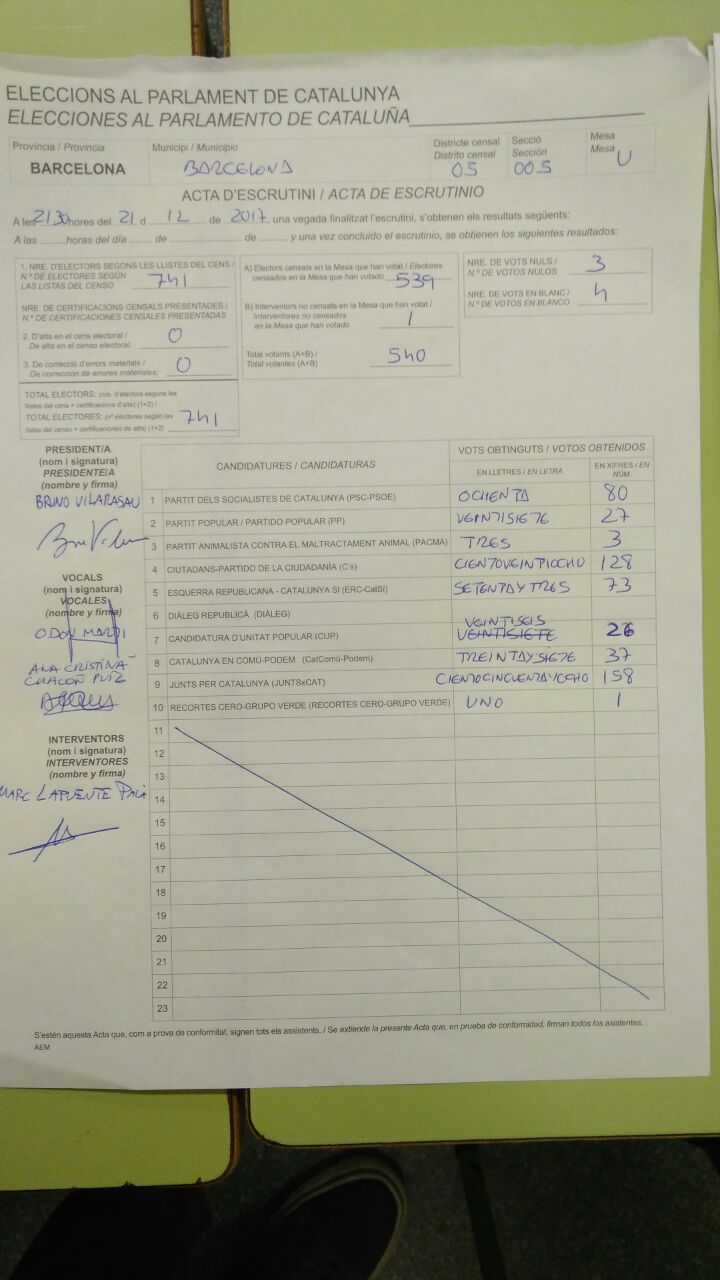 ELECCIONS AL PARLAMENT DE CATALUNYA
ELECCIONES AL PARLAMENTO DE CATALUÑA
Província / Provincia
BARCELONA
Municipi / Municipio
BARCELONA
Districte censal
Distrito censal
05
Secció
Sección
005
Mesa
Mesa
U
ACTA D'ESCRUTINI / ACTA DE ESCRUTINIO
A les 2130 hores del 21 d 12 de 2017, una vegada finalitzat l'escrutini, s'obtenen els resultats següents:
A las ......... horas del día ....... de ......................... de ........., y una vez concluido el escrutinio, se obtienen los siguientes resultados:
1. NRE. D'ELECTORS SEGONS LES LLISTES DEL CENS /
N.º DE ELECTORES SEGÚN
LAS LISTAS DEL CENSO 741
NRE. DE CERTIFICACIONS CENSALS PRESENTADES /
N.º DE CERTIFICACIONES CENSALES PRESENTADAS
2. D'alta en el cens electoral /
De alta en el censo electoral: 0
3. De correcció d'errors materials /
De corrección de errores materiales: 0
TOTAL ELECTORS: (nre. d'electors segons les
llistes del cens + certificacions d'alta) (1+2) /
TOTAL ELECTORES: (nº electores según las
listas del censo + certificaciones de alta) (1+2) 741
A) Electors censats en la Mesa que han votat / Electores
censados en la Mesa que han votado 539
B) Interventors no censats en la Mesa que han votat /
Interventores no censados
en la Mesa que han votado 1
Total votants (A+B) /
Total votantes (A+B) 540
NRE. DE VOTS NULS /
N.º DE VOTOS NULOS 3
NRE. DE VOTS EN BLANC /
N.º DE VOTOS EN BLANCO 4
PRESIDENT/A
(nom i signatura)
PRESIDENTE/A
(nombre y firma)
BRUNO VILARASAU
VOCALS
(nom i signatura)
VOCALES
(nombre y firma)
ANA CRISTINA
CHACON RUIZ
INTERVENTORS
(nom i signatura)
INTERVENTORES
(nombre y firma)
MARC LAPUENTE
CANDIDATURES / CANDIDATURAS
VOTS OBTINGUTS / VOTOS OBTENIDOS
EN LLETRES / EN LETRA
EN XIFRES / EN NÚM.
1 PARTIT DELS SOCIALISTES DE CATALUNYA (PSC-PSOE) OCHENTA 80
2 PARTIT POPULAR / PARTIDO POPULAR (PP) VEINTISIETE 27
3 PARTIT ANIMALISTA CONTRA EL MALTRACTAMENT ANIMAL (PACMA) TRES 3
4 CIUTADANS-PARTIDO DE LA CIUDADANÍA (C's) CIENTOVEINTIOCHO 128
5 ESQUERRA REPUBLICANA - CATALUNYA SI (ERC-CatSI) SETENTAYTRES 73
6 DIÀLEG REPUBLICÀ (DIÀLEG)
VEINTISEIS
7 CANDIDATURA D'UNITAT POPULAR (CUP) VEINTISIETE 26
8 CATALUNYA EN COMÚ-PODEM (CatComú-Podem) TREINTAYSIETE 37
9 JUNTS PER CATALUNYA (JUNTSxCAT) CIENTOCINCUENTAYOCHO 158
10 RECORTES CERO-GRUPO VERDE (RECORTES CERO-GRUPO VERDE) UNO 1
11
12
13
14
15
16
17
18
19
20
21
22
23
S'estén aquesta Acta que, com a prova de conformitat, signen tots els assistents. / Se extiende la presente Acta que, en prueba de conformidad, firman todos los asistentes.
AEM